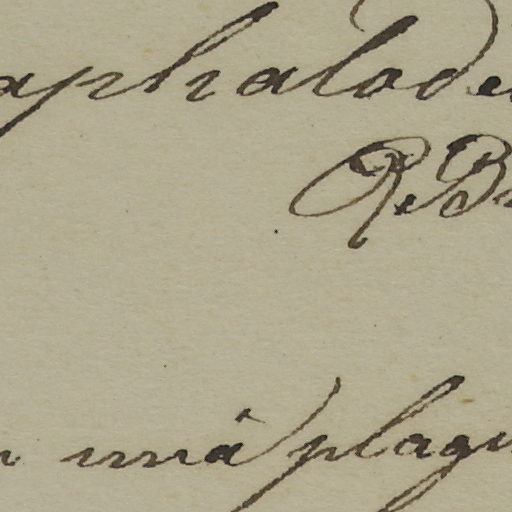 aphalode
R. B
unâ plagu